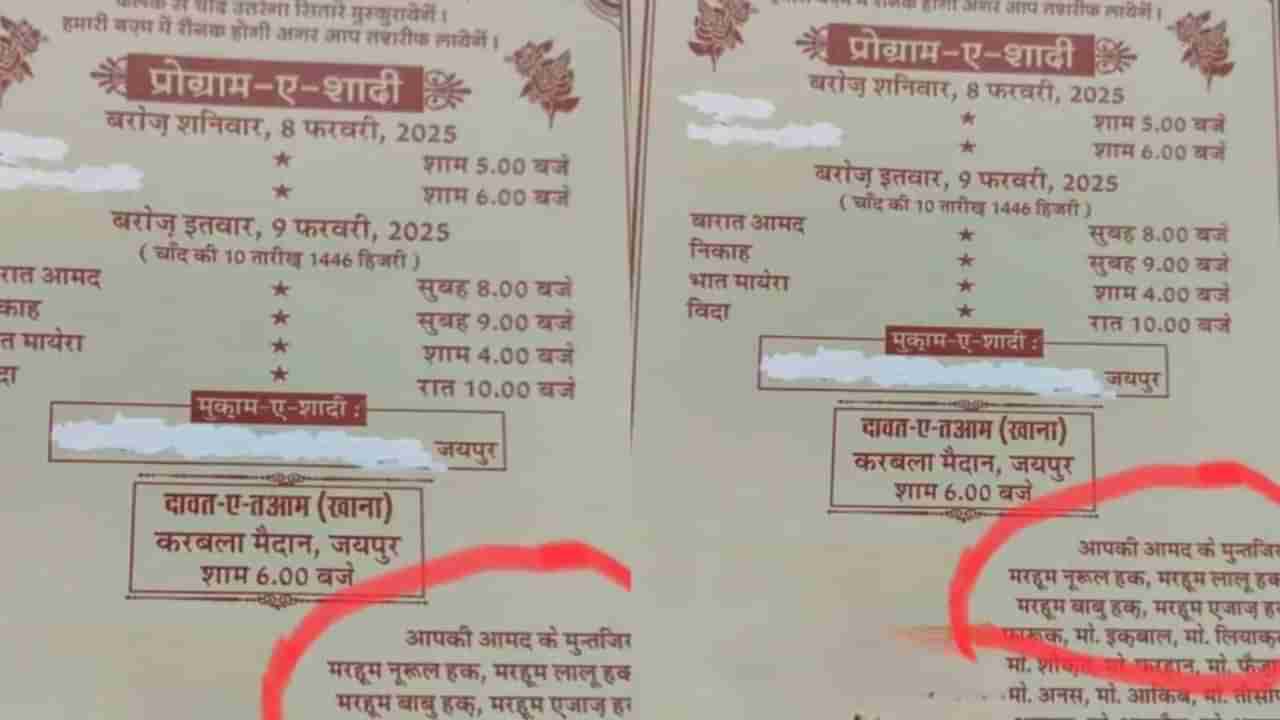 हमारी बज़्म में रौनक होगी अगर आप तशरीफ लायेगें।
प्रोग्राम-ए-शादी
बरोज़ शनिवार, 8 फरवरी, 2025
★ शाम 5.00 बजे
★ शाम 6.00 बजे
बरोज़ इतवार, 9 फरवरी, 2025
( चाँद की 10 तारीख़ 1446 हिजरी )
रात आमद ★ सुबह 8.00 बजे
काह ★ सुबह 9.00 बजे
त मायेरा ★ शाम 4.00 बजे
दा ★ रात 10.00 बजे
मुक़ाम-ए-शादी :
जयपुर
दावत-ए-तआम (खाना)
करबला मैदान, जयपुर
शाम 6.00 बजे
आपकी आमद के मुन्तजिर
मरहूम नूरूल हक, मरहूम लालू हक
मरहूम बाबु हक़, मरहूम एजाज़ ह
प्रोग्राम-ए-शादी
बरोज़ शनिवार, 8 फरवरी, 2025
★ शाम 5.00 बजे
★ शाम 6.00 बजे
बरोज़ इतवार, 9 फरवरी, 2025
( चाँद की 10 तारीख़ 1446 हिजरी )
बारात आमद ★ सुबह 8.00 बजे
निकाह ★ सुबह 9.00 बजे
भात मायेरा ★ शाम 4.00 बजे
विदा ★ रात 10.00 बजे
मुक़ाम-ए-शादी :
जयपुर
दावत-ए-तआम (खाना)
करबला मैदान, जयपुर
शाम 6.00 बजे
आपकी आमद के मुन्तजिर
मरहूम नूरूल हक, मरहूम लालू हक
मरहूम बाबु हक़, मरहूम एजाज़ ह
फारूक, मो. इक़बाल, मो. लियाक़
मो. शौकत, मो. फरहान, मो. फैज़ा
मो. अनस, मो. आकिब, मो. तौसी